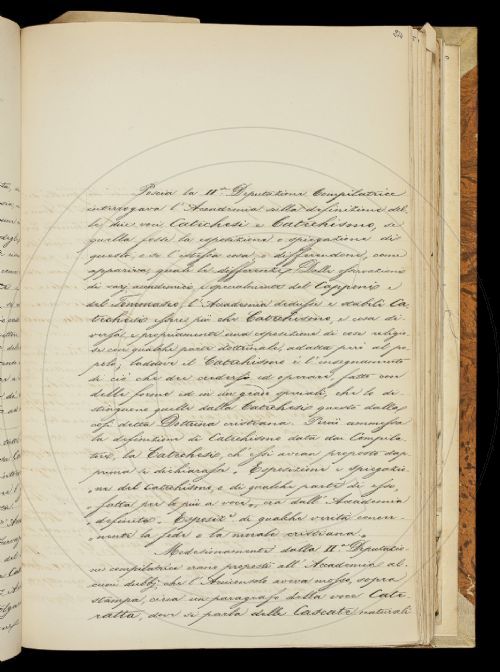 214
Poscia la II.ª Deputazione Compilatrice
interrogava l'Accademia sulla definizione del-
le due voci Catechesi e Catechismo, se
quella fosse la esposizione e spiegazione di
questo, e se l'istessa cosa, o differendone, come
appariva, quale la differenza. Dalle osservazioni
di varj accademici e specialmente del Capponi e
del Tommaseo, l'Accademia dedusse e stabilì Ca-
techesi esser più che Catechismo, e cosa di-
versa, e propriamente una esposizione di cose religio-
se con qualche parte dottrinale, adatta più al po-
polo; laddove il Catechismo è l'insegnamento
di ciò che dee credersi ed operare, fatto con
delle forme ed in un grado speciale, che lo di-
stinguono quelle dalla Catechesi questo dalla
così detta Dottrina cristiana. Però ammessa
la definizione di Catechismo data dai Compila-
tori, la Catechesi, ch'essi avean proposto dap-
prima si dichiarasse "Esposizione e spiegazio-
"ne del catechismo, e di qualche parte di esso,
"fatta per lo più a voce", era dall'Accademia
definita "Esposiz.e di qualche verità concer-
"nente la fede o la morale cristiana."
Medesimamente dalla II.ª Deputazio-
ne compilatrice erano proposti all'Accademia al-
cuni dubbj che l'Arciconsolo aveva mosso, sopra
stampa, circa un paragrafo della voce Cate-
ratta, dove si parla delle Cascate naturali